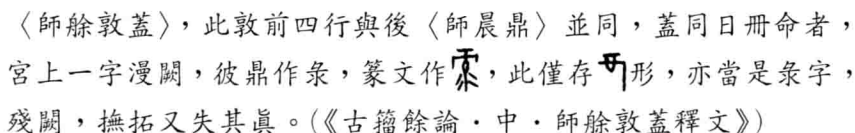 〈師艅敦蓋〉，此敦前四行與後〈師晨鼎〉並同，蓋同日冊命者，
宮上一字漫闕，彼鼎作彔，篆文作，此僅存形，亦當是彔字，
殘闕，撫拓又失其真。（《古籀餘論‧中‧師艅敦蓋釋文》）